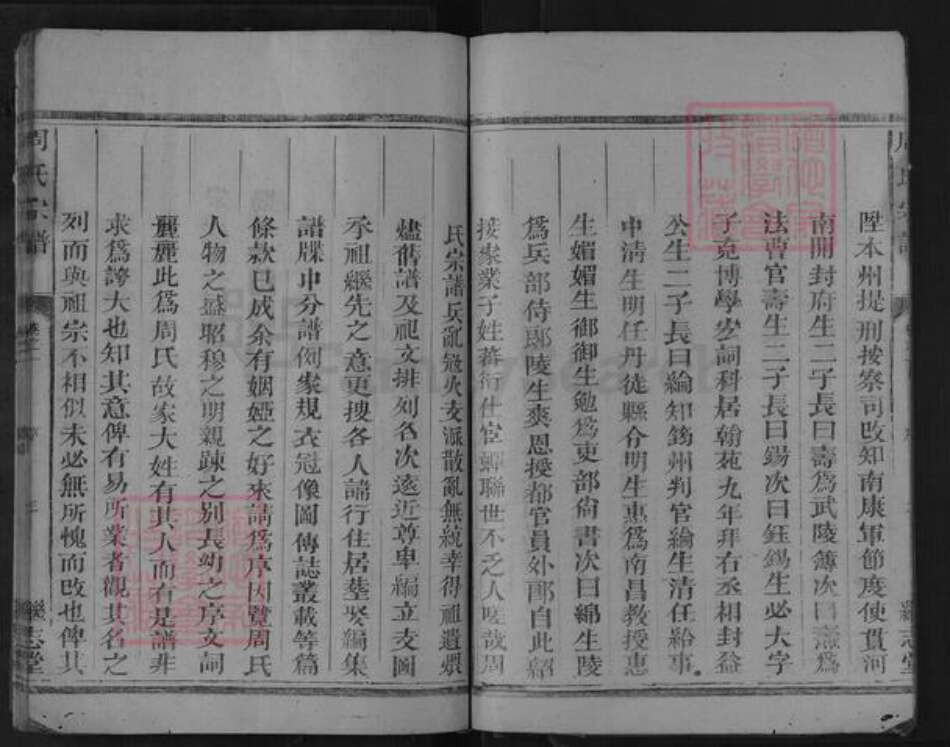 陞本州提刑按察司改知南康軍節度使貫河
南開封府生二子長曰壽為武陵簿次曰燾爲
法曹官壽生二子長曰錫次曰鈺錫生必大字
子充博學宏詞科居翰苑九年拜右丞相封益
公生二子長曰綸知筠州判官綸生清任給事
中清生明任丹徒縣令明生惠為南昌教授惠
生媚媚生御御生勉爲吏部尚書次曰綿生陵
爲兵部侍郎陵生爽恩授都官員外郎自此紹
接家業子姓蕃衍仕宦蟬聯世不乏人嗟哉周
氏宗譜兵亂冦火支派散亂無統幸得祖遺燬
燼舊譜及祀文排列名次遠近尊卑編立支圖
承祖繼先之意更搜各人諱行住居塟娶編集
譜牒中分譜例家規衣冠像圖傳誌叢載等篇
條款已成余有姻婭之好來請為序因覽周氏
人物之盛昭穆之明親踈之别長幼之序文詞
麗麗此爲周氏故家大姓有其人而有是譜非
求爲誇大也知其意俾有易所業者觀其名之
列而與祖宗不相似未必無所愧而改也俾其
周氏宗譜
繼志堂